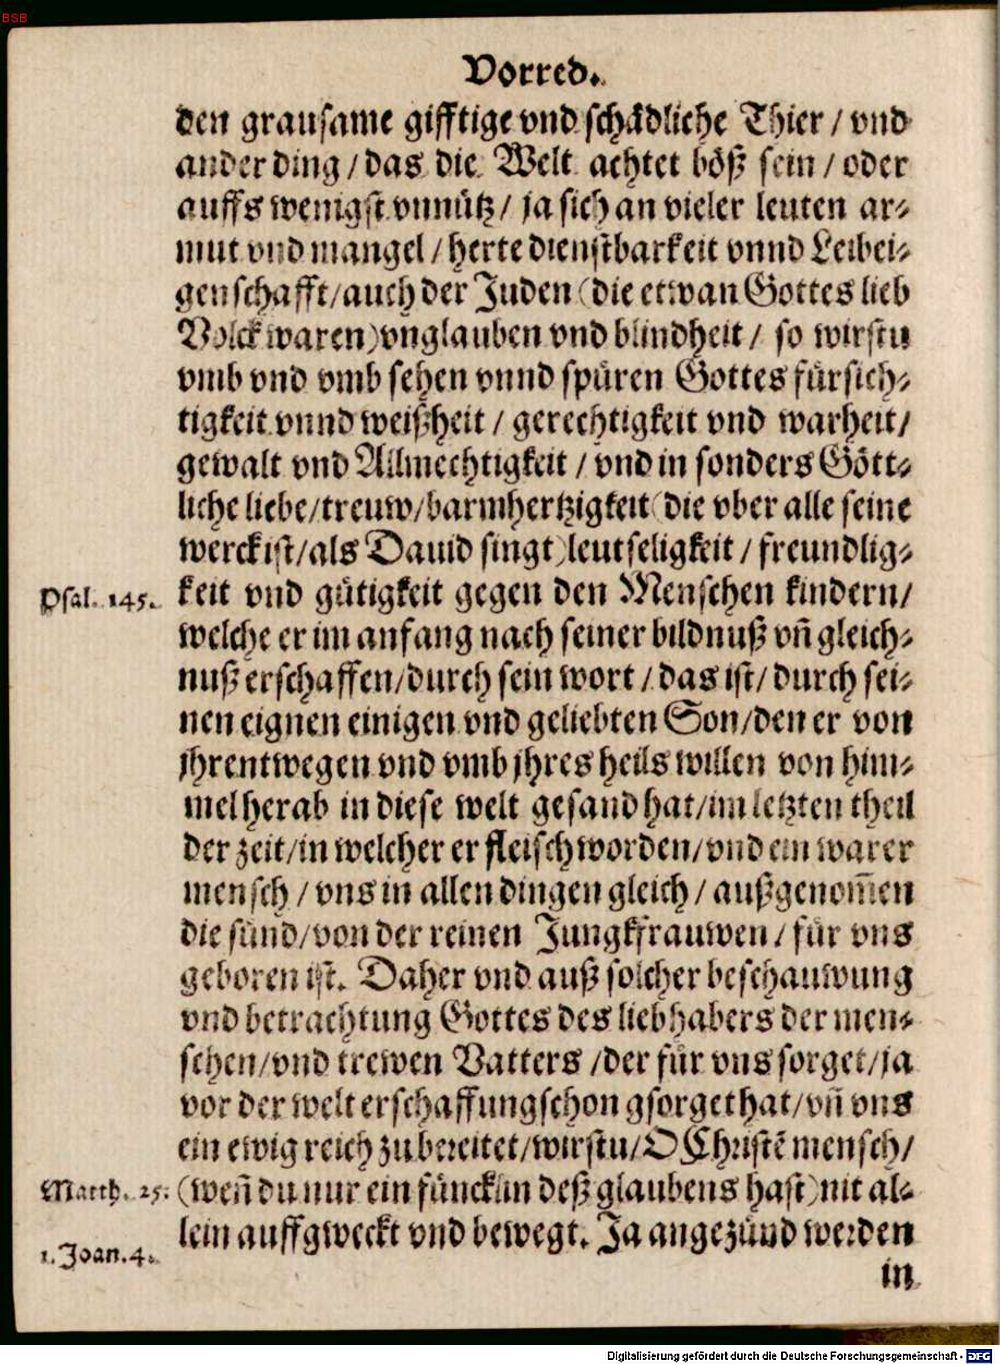 BSB
Vorred.
den grausame gifftige vnd schådliche Thier / vnd
ander ding / das die Welt achtet bőß sein / oder
auffs wenigst vnnütz / ja sich an vieler leuten ar⸗
mut vnd mangel / herte dienstbarkeit vnnd Leibei⸗
genschafft / auch der Juden (die etwan Gottes lieb
Volck waren) vnglauben vnd blindheit / so wirstu
vmb vnd vmb sehen vnnd spüren Gottes fürsich⸗
tigkeit vnnd weißheit / gerechtigkeit vnd warheit /
gewalt vnd Allmechtigkeit / vnd in sonders Gőtt⸗
liche liebe / treuw / barmhertzigkeit (die vber alle seine
werck ist / als Dauid singt) leutseligkeit / freundlig⸗
Psal. 145. keit vnd gütigkeit gegen den Menschen kindern /
welche er im anfang nach seiner bildnuß vñ gleich⸗
nuß erschaffen / durch sein wort / das ist / durch sei⸗
nen eignen einigen vnd geliebten Son / den er von
jhrentwegen vnd vmb jhres heils willen von him⸗
mel herab in diese welt gesand hat / im letzten theil
der zeit / in welcher er fleisch worden / vnd ein warer
mensch / vns in allen dingen gleich / außgenom̃en
die sünd / von der reinen Jungkfrauwen / für vns
geboren ist. Daher vnd auß solcher beschauwung
vnd betrachtung Gottes des liebhabers der men⸗
schen / vnd trewen Vatters / der für vns sorget / ja
vor der welt erschaffung schon gsorget hat / vñ vns
ein ewig reich zu bereitet / wirstu / O Christẽ mensch /
Matth. 25. (weñ du nur ein füncklin deß glaubens hast) nit al⸗
lein auffgweckt vnd bewegt. Ja angezünd werden
1. Joan. 4.
in
Digitalisierung gefördert durch die Deutsche Forschungsgemeinschaft - DFG